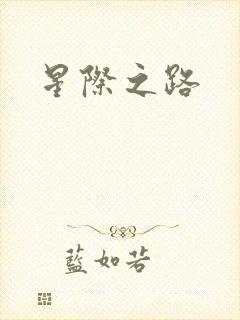 星際之路
藍如若